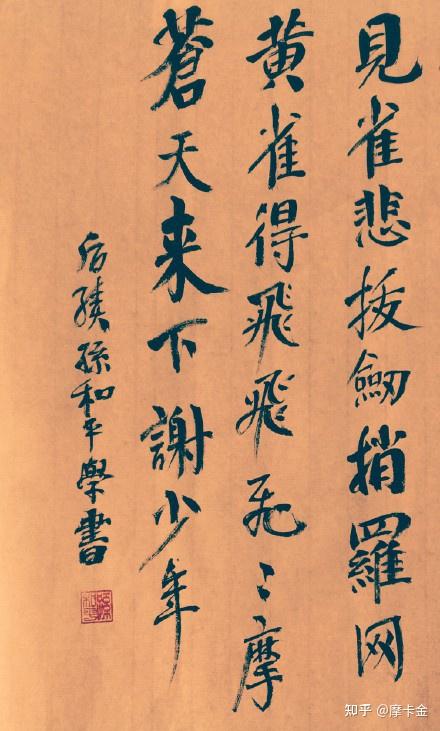 見雀悲拔劒捎羅网
黄雀得飛飛飞〻摩
蒼天来下謝少年
后 孫和平學書
知乎 @摩卡金